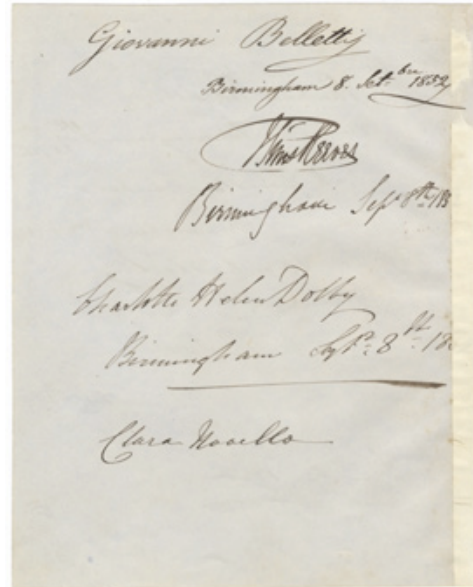 Giovanni Belletti
Birmingham 8. Set.bre 1852
J Sims Reeves
Birmingham Sepr 8th 185
Charlotte Helen Dolby
Birmingham Sept. 8th 18
Clara Novello